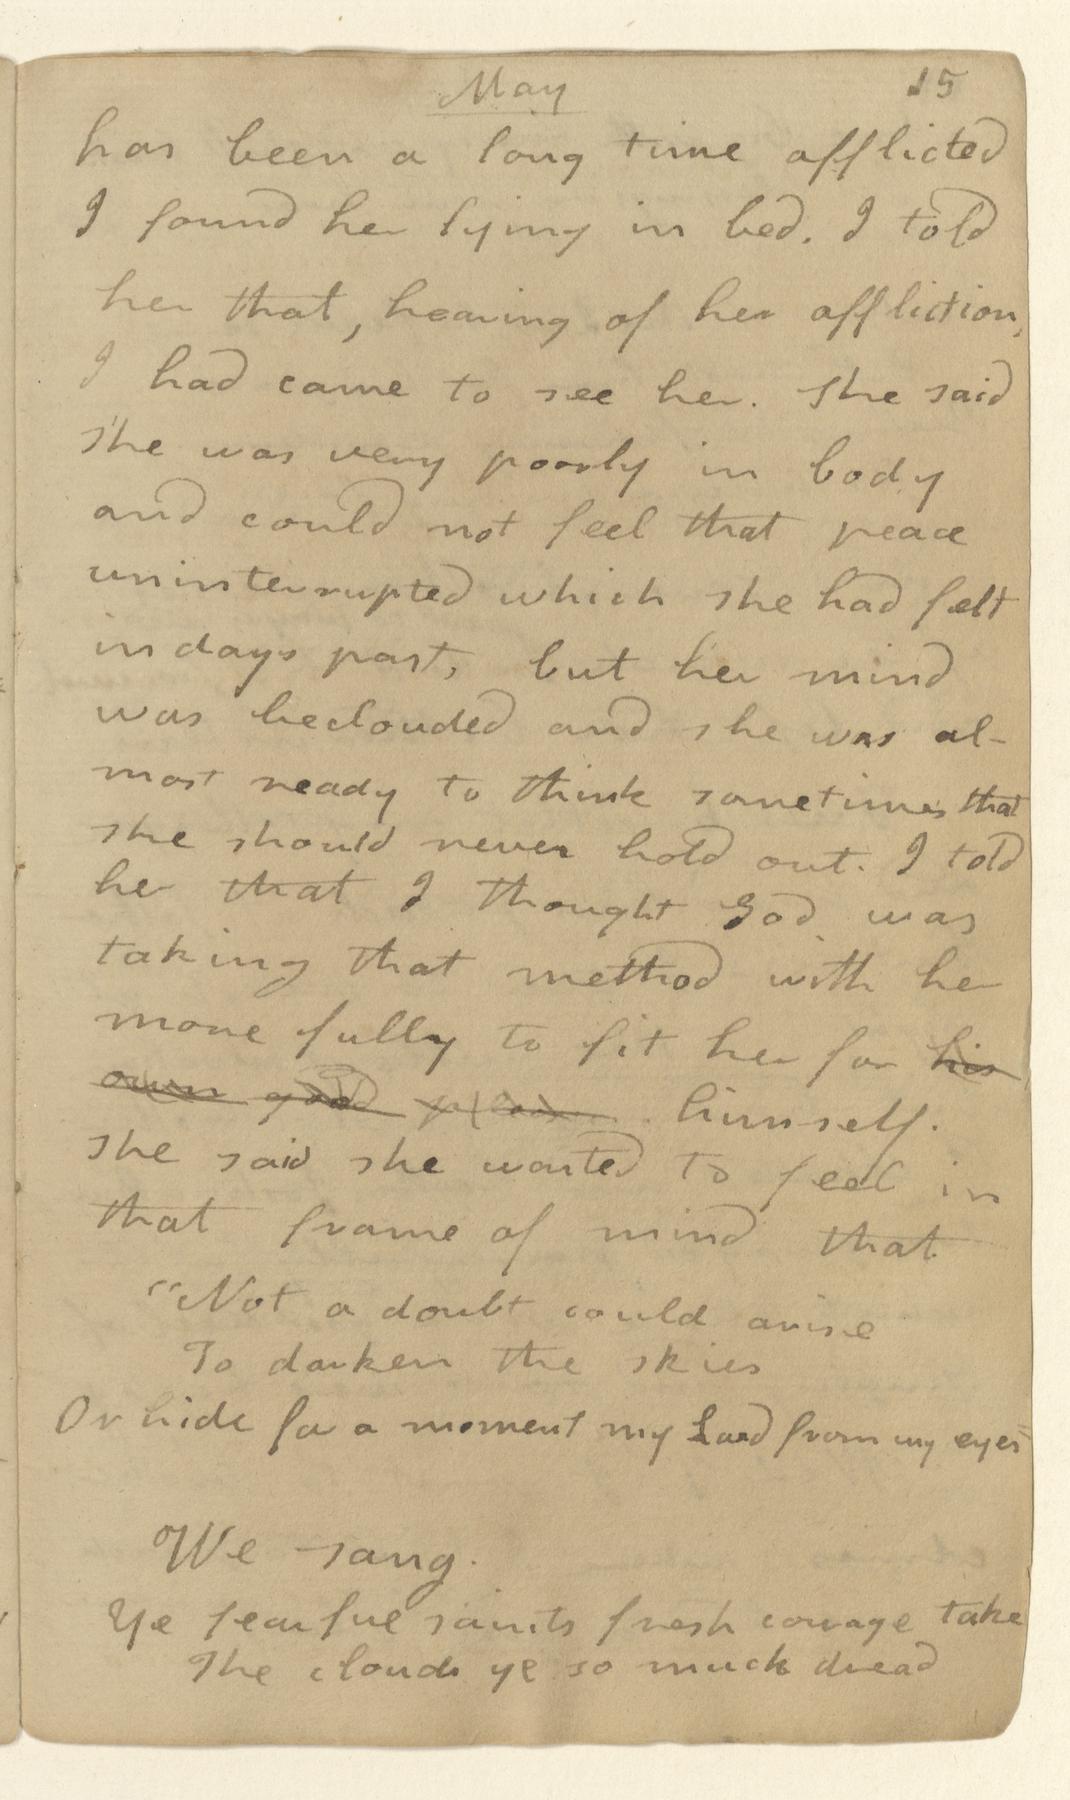 May 15
has been a long time afflicted
I found her lying in bed. I told
her that, hearing of her affliction,
I had came to see her. She said
she was very poorly in body
and could not feel that peace
uninterrupted which she had felt
in days past, but her mind
was beclouded and she was al-
most ready to think sometimes that
she should never hold out. I told
her that I thought God was
taking that method with her
more fully to fit her for his
own good himself.
She said she wanted to feel in
that frame of mind that
"Not a doubt could arise
To darken the skies
Or hide for a moment my Lord from my eyes"
We sang.
Ye fearful saints fresh courage take
The clouds ye so much dread